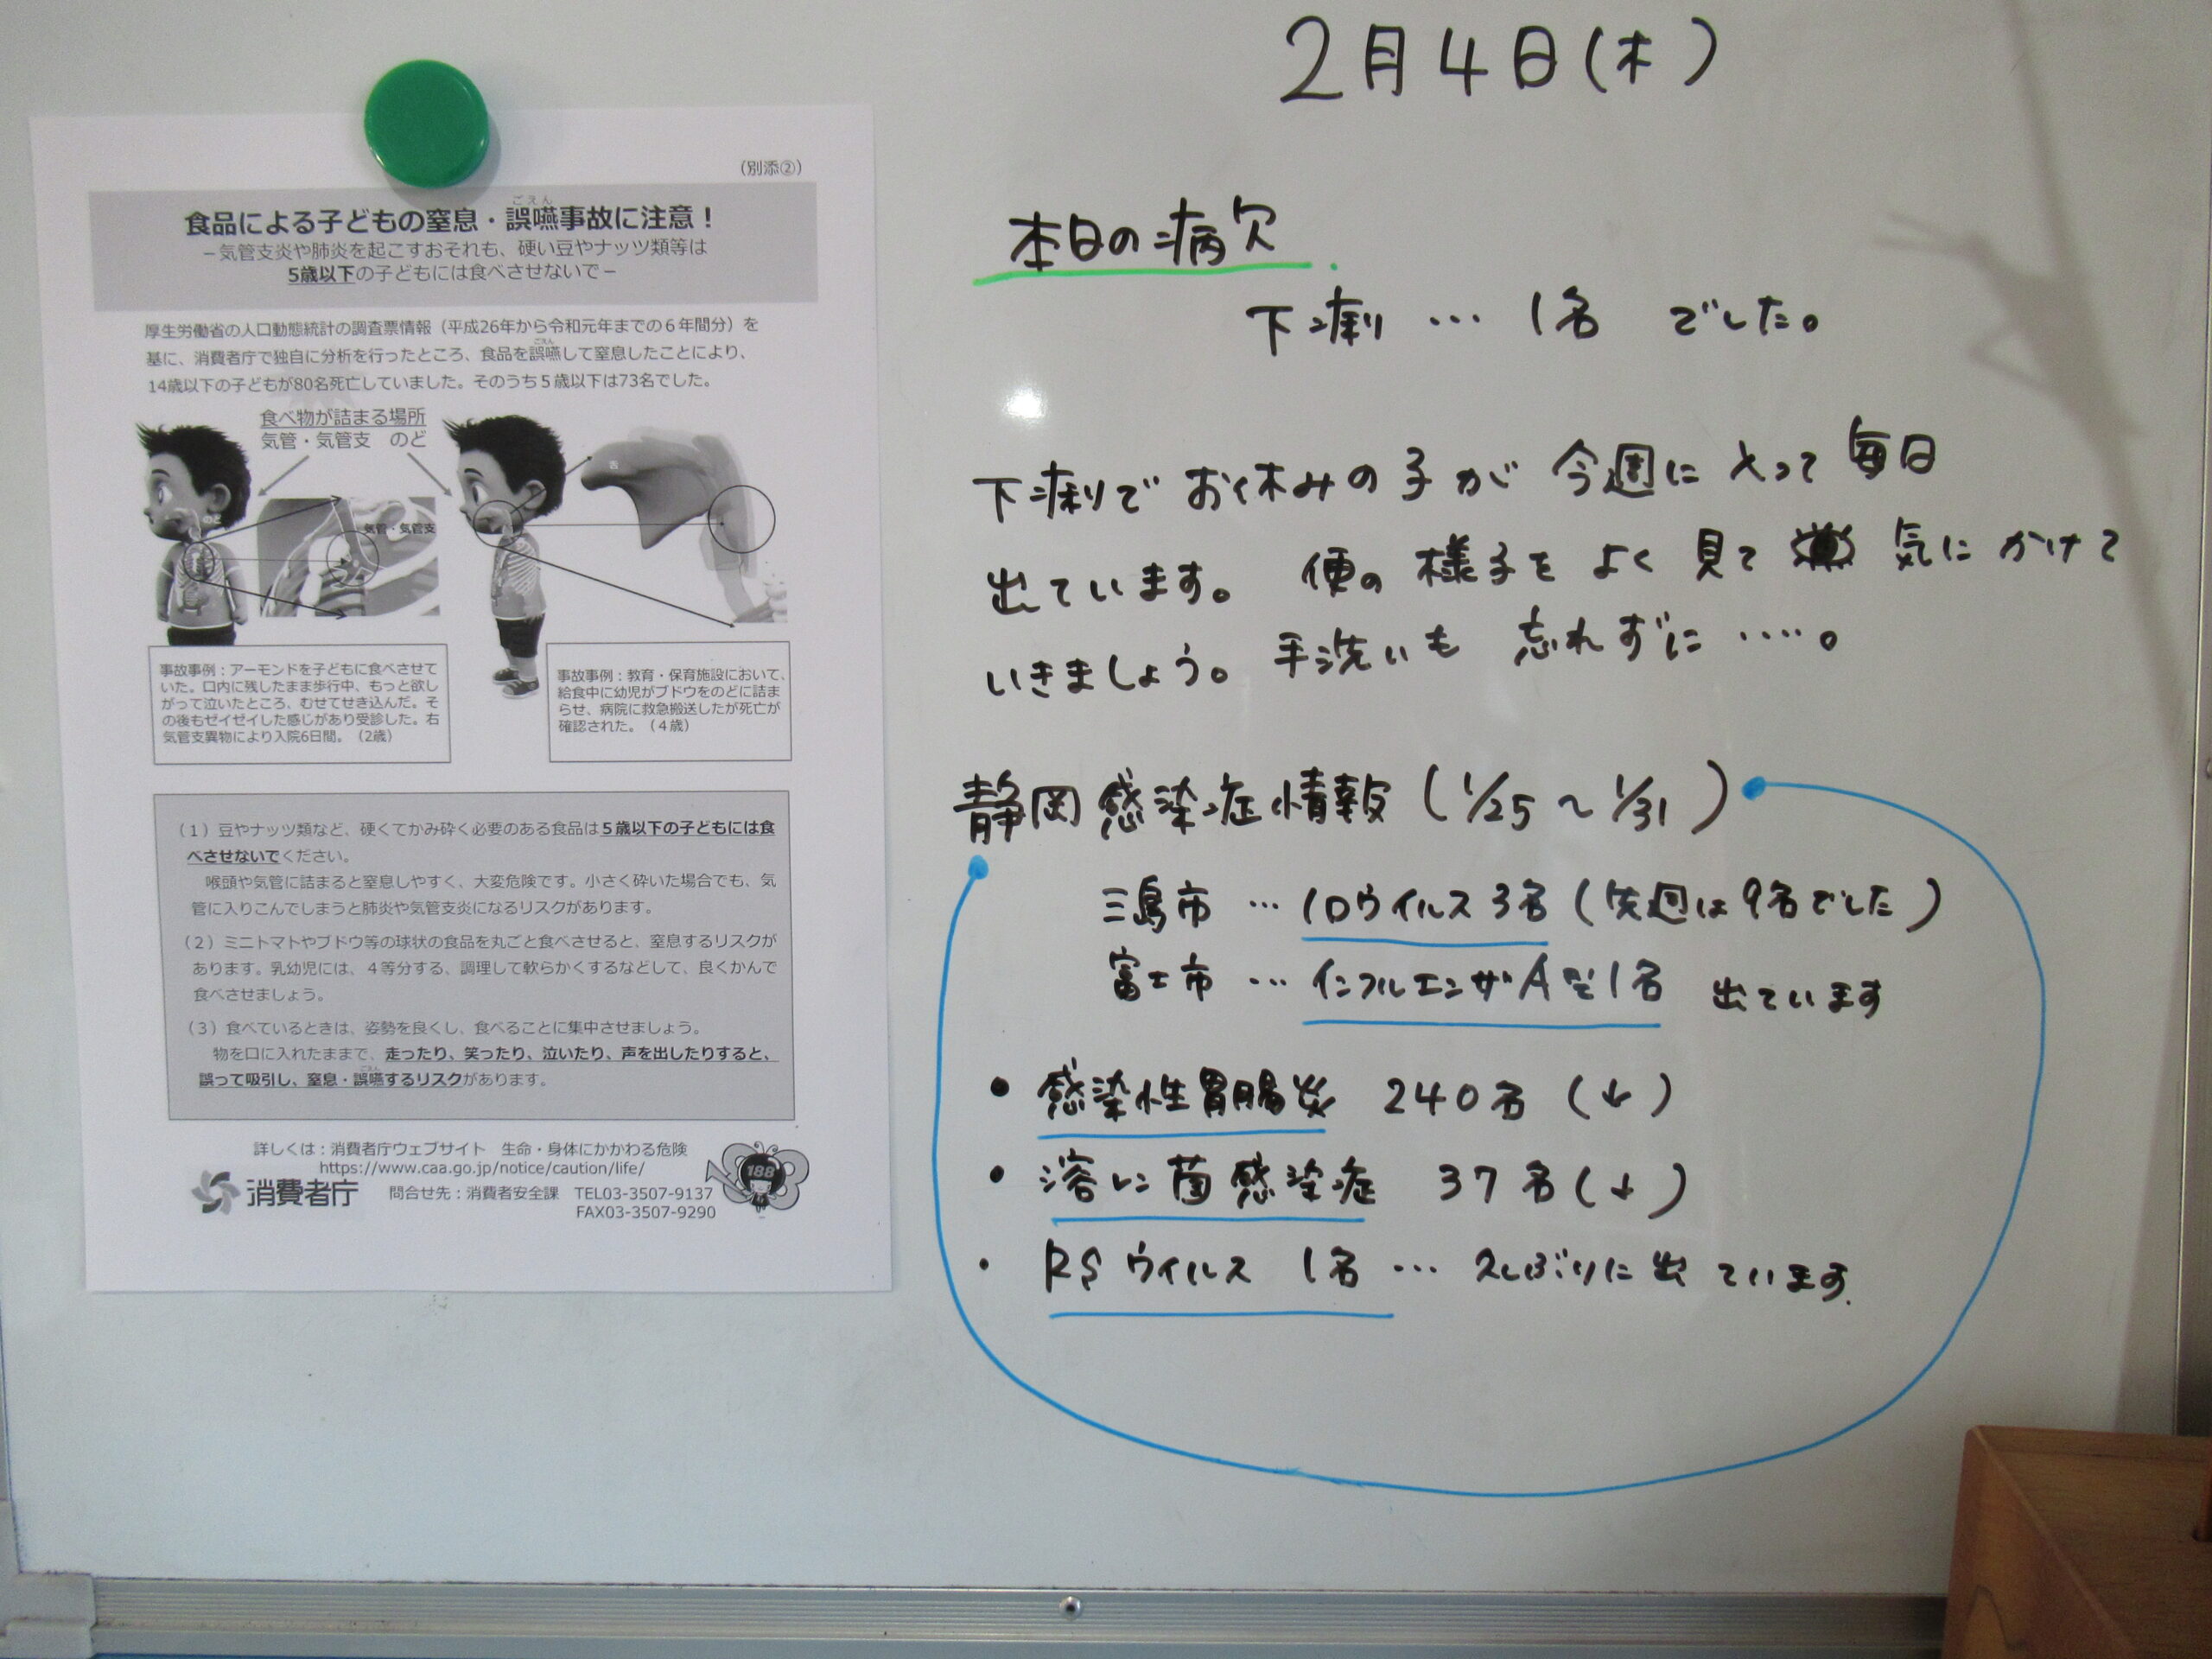 (別添②)
食品による子どもの窒息・誤嚥事故に注意！
ごえん
－気管支炎や肺炎を起こすおそれも、硬い豆やナッツ類等は
5歳以下の子どもには食べさせないで－
厚生労働省の人口動態統計の調査票情報（平成26年から令和元年までの６年間分）を
基に、消費者庁で独自に分析を行ったところ、食品を誤嚥して窒息したことにより、
ごえん
14歳以下の子どもが80名死亡していました。そのうち５歳以下は73名でした。
食べ物が詰まる場所
気管・気管支　のど
気管・気管支
舌
事故事例：アーモンドを子どもに食べさせて
いた。口内に残したまま歩行中、もっと欲し
がって泣いたところ、むせてせき込んだ。そ
の後もゼイゼイした感じがあり受診した。右
気管支異物により入院6日間。（2歳）
事故事例：教育・保育施設において、
給食中に幼児がブドウをのどに詰ま
らせ、病院に救急搬送したが死亡が
確認された。（４歳）
（1）豆やナッツ類など、硬くてかみ砕く必要のある食品は５歳以下の子どもには食
べさせないでください。
喉頭や気管に詰まると窒息しやすく、大変危険です。小さく砕いた場合でも、気
管に入りこんでしまうと肺炎や気管支炎になるリスクがあります。
（2）ミニトマトやブドウ等の球状の食品を丸ごと食べさせると、窒息するリスクが
あります。乳幼児には、４等分する、調理して軟らかくするなどして、良くかんで
食べさせましょう。
（3）食べているときは、姿勢を良くし、食べることに集中させましょう。
物を口に入れたままで、走ったり、笑ったり、泣いたり、声を出したりすると、
誤って吸引し、窒息・誤嚥するリスクがあります。
ごえん
詳しくは：消費者庁ウェブサイト　生命・身体にかかわる危険
https://www.caa.go.jp/notice/caution/life/
消費者庁
問合せ先：消費者安全課　TEL03-3507-9137
FAX03-3507-9290
188
2月4日(木)
本日の病欠
下痢 … 1名 でした。
下痢で お休みの子が 今週に入って 毎日
出ています。 便の 様子を よく 見て 気に かけて
いきましょう。 手洗いも 忘れずに ‥‥。
静岡感染症情報 (1/25 ～ 1/31)
三島市 … ロウイルス 3名 (先週は 9名でした)
富士市 … インフルエンザA型 1名 出ています
• 感染性胃腸炎 240名 (↓)
• 溶レン菌感染症 37名 (↓)
• RSウイルス 1名 … 久しぶりに出 ています.